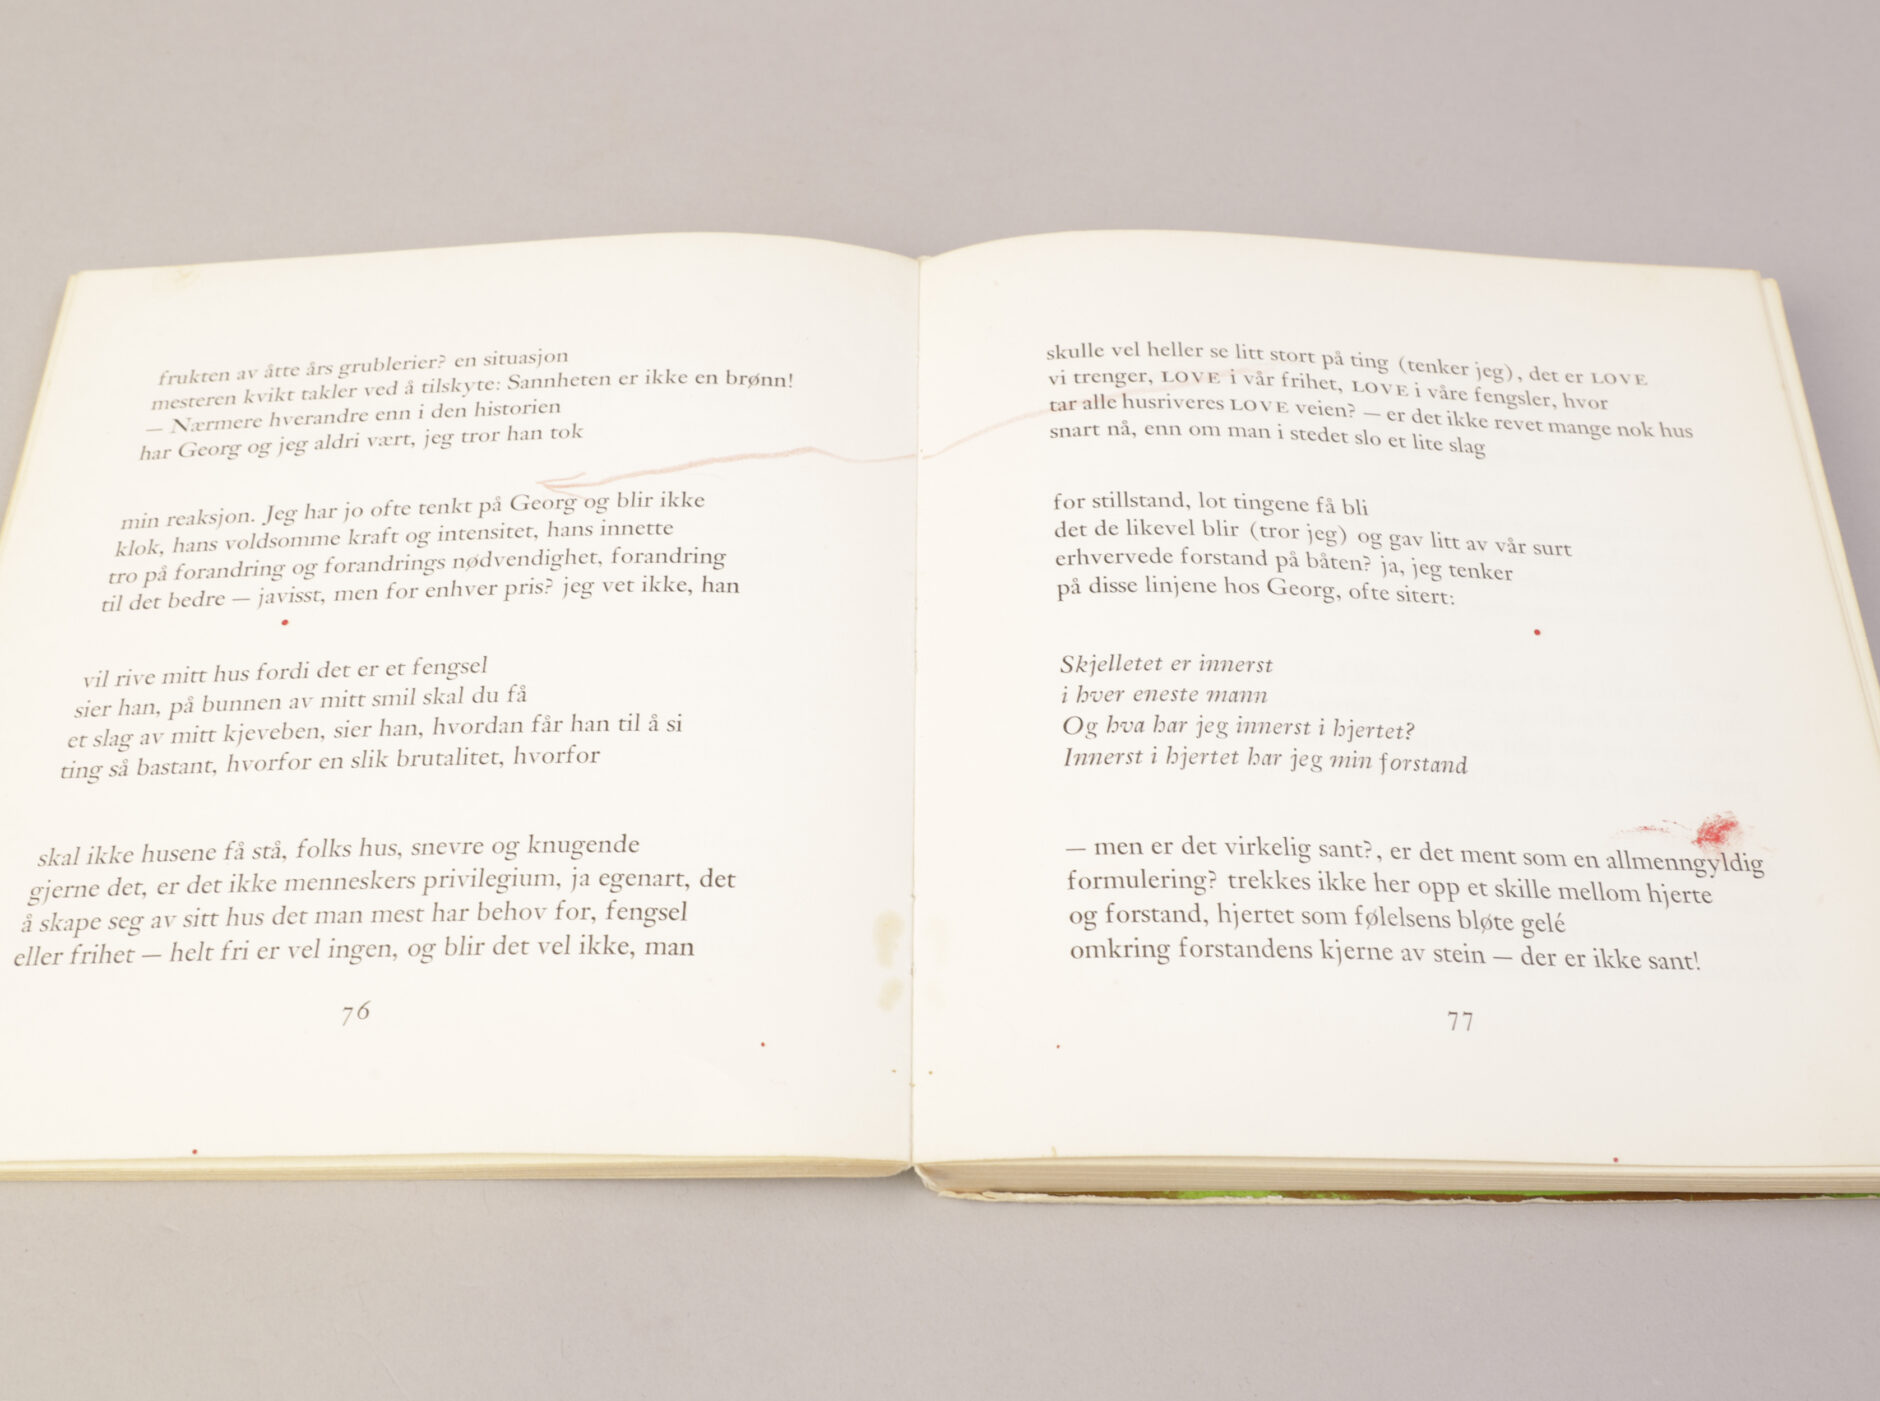 frukten av åtte års grublerier? en situasjon
mesteren kvikt takler ved å tilskyte: Sannheten er ikke en brønn!
— Nærmere hverandre enn i den historien
har Georg og jeg aldri vært, jeg tror han tok
min reaksjon. Jeg har jo ofte tenkt på Georg og blir ikke
klok, hans voldsomme kraft og intensitet, hans innette
tro på forandring og forandrings nødvendighet, forandring
til det bedre — javisst, men for enhver pris? jeg vet ikke, han
vil rive mitt hus fordi det er et fengsel
sier han, på bunnen av mitt smil skal du få
et slag av mitt kjeveben, sier han, hvordan får han til å si
ting så bastant, hvorfor en slik brutalitet, hvorfor
skal ikke husene få stå, folks hus, snevre og knugende
gjerne det, er det ikke menneskers privilegium, ja egenart, det
å skape seg av sitt hus det man mest har behov for, fengsel
eller frihet — helt fri er vel ingen, og blir det vel ikke, man
76
skulle vel heller se litt stort på ting (tenker jeg), det er LOVE
vi trenger, LOVE i vår frihet, LOVE i våre fengsler, hvor
tar alle husriveres LOVE veien? — er det ikke revet mange nok hus
snart nå, enn om man i stedet slo et lite slag
for stillstand, lot tingene få bli
det de likevel blir (tror jeg) og gav litt av vår surt
erhvervede forstand på båten? ja, jeg tenker
på disse linjene hos Georg, ofte sitert:
Skjelletet er innerst
i hver eneste mann
Og hva har jeg innerst i hjertet?
Innerst i hjertet har jeg min forstand
— men er det virkelig sant?, er det ment som en allmenngyldig
formulering? trekkes ikke her opp et skille mellom hjerte
og forstand, hjertet som følelsens bløte gelé
omkring forstandens kjerne av stein — der er ikke sant!
77